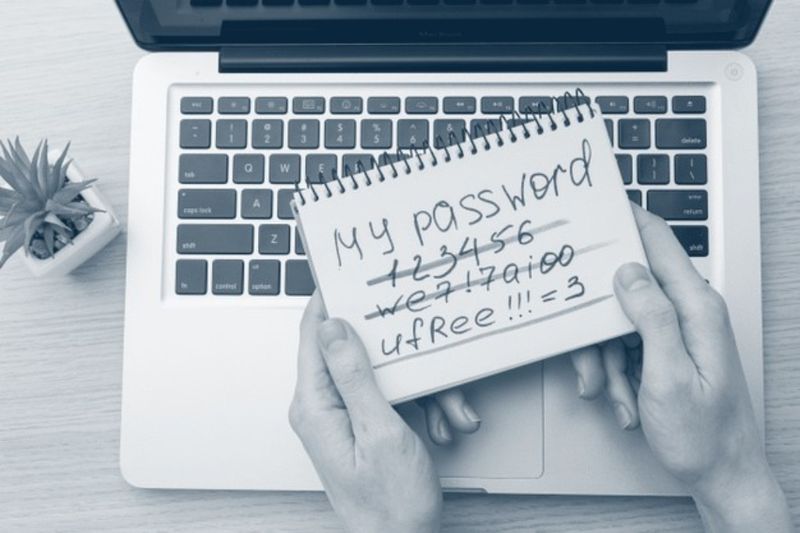 MacBook
esc
~ ! @ # $ % ^
1 2 3 4 5 6
+
=
delete
tab Q W E
caps lock A
return
shift Z
shift
fn control option
My password
123456
we7!7aioo
ufRee!!!=3